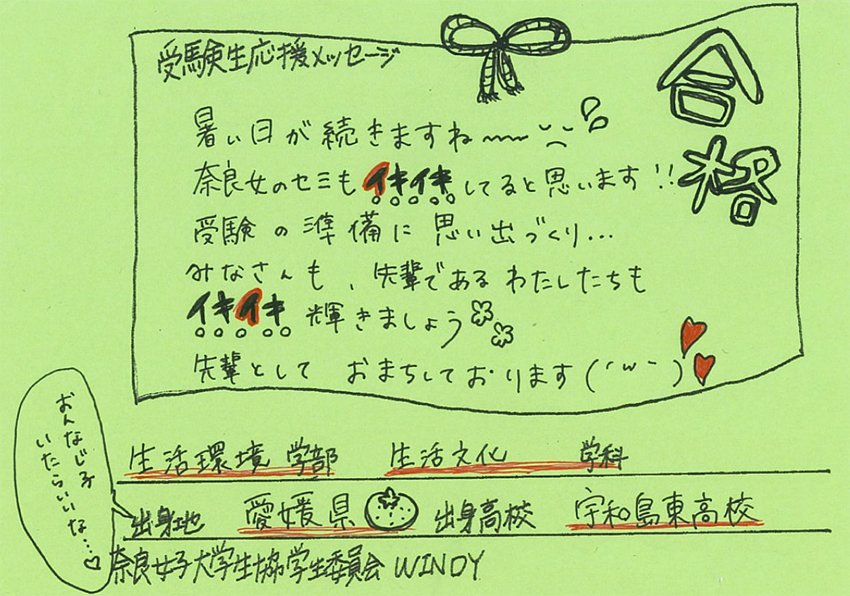 受験生応援メッセージ
合格
暑い日が続きますね〜
奈良女のセミもイキイキしてると思います!!
受験の準備に思い出づくり...
みなさんも、先輩であるわたしたちも
イキイキ輝きましょう
先輩として おまちしております(´w`)
おんなじ子
いたらいいな...♡
生活環境 学部 生活文化 学科
出身地 愛媛県 出身高校 宇和島東高校
奈良女子大学生協学生委員会 WINDY